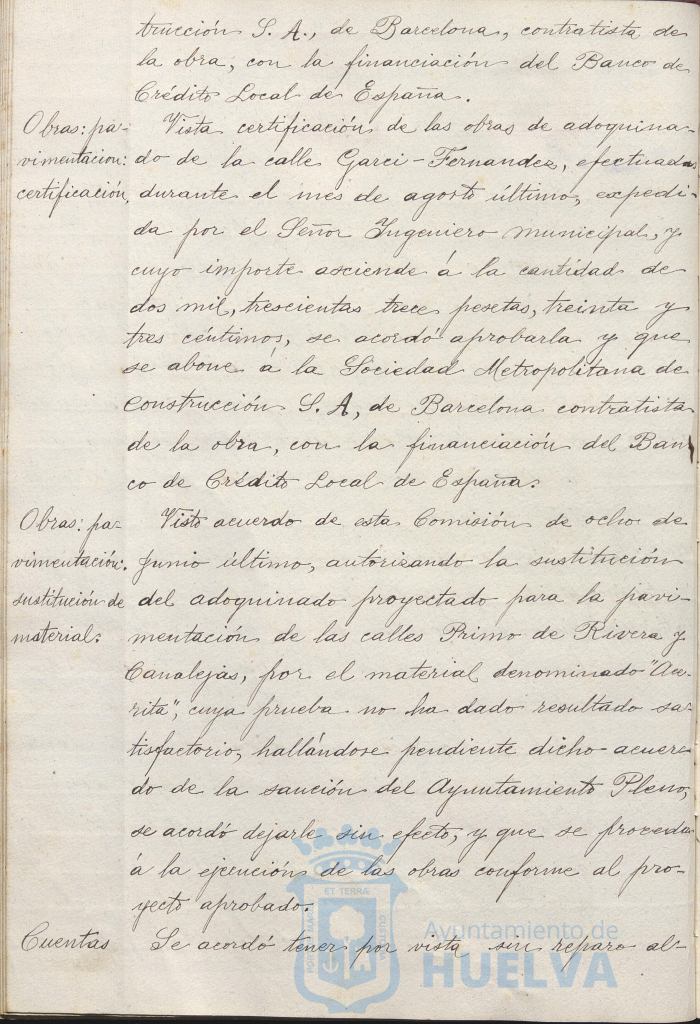 trucción S. A., de Barcelona, contratista de
la obra, con la financiación del Banco de
Crédito Local de España.
Obras: pa-
vimentacion:
certificación,
Vista certificación de las obras de adoquina-
do de la calle Garci-Fernandez, efectuadas
durante el mes de agosto último, expedi-
da por el Señor Ingeniero municipal, y
cuyo importe asciende á la cantidad de
dos mil, trescientas trece pesetas, treinta y
tres céntimos, se acordó aprobarla y que
se abone á la Sociedad Metropolitana de
Construcción S. A, de Barcelona contratista
de la obra, con la financiación del Ban-
co de Crédito Local de España.
Obras: pa-
vimentación:
sustitución de
material:
Visto acuerdo de esta Comisión de ocho de
Junio último, autorizando la sustitución
del adoquinado proyectado para la pavi-
mentación de las calles Primo de Rivera y
Canalejas, por el material denominado "Ace-
rita", cuya prueba no ha dado resultado sa-
tisfactorio, hallándose pendiente dicho acuer-
do de la sanción del Ayuntamiento Pleno,
se acordó dejarle sin efecto, y que se proceda
á la ejecución de las obras conforme al pro-
yecto aprobado.
Cuentas
Se acordó tener por vista sin reparo al-
ET TERRAE
Ayuntamiento de
HUELVA